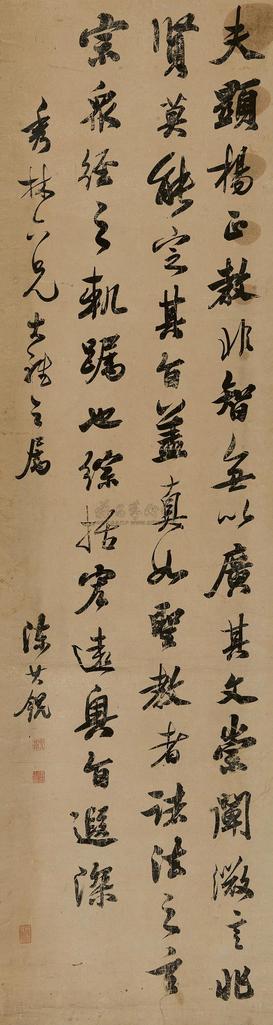 夫顯揚正教非智無以廣其文崇闡微言非
賢莫能定其旨蓋真如聖教者諸法之玄
宗眾經之軌躅也綜括宏遠奧旨遐深
秀林六兄大雅之屬
陳其錕